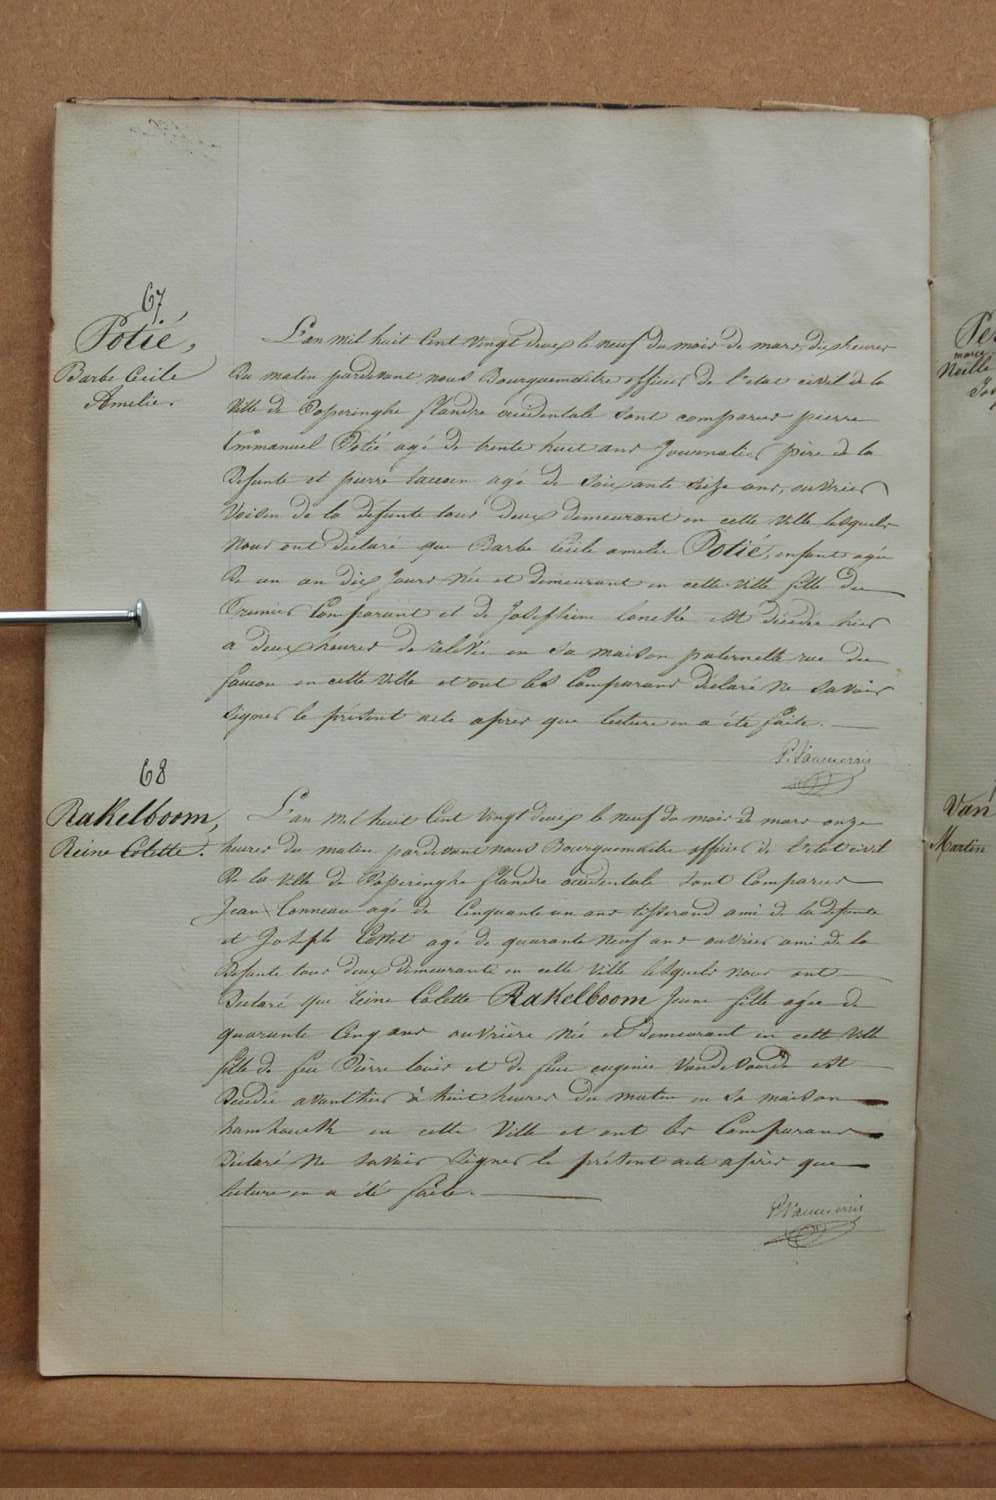 67
Potié,
Barbe Cecile
Amelie.
L'an mil huit Cent vingt deux le neuf du mois de mars, dix heures
Du matin pardevant nous Bourguemaitre officier de l'etat civil de la
Ville de Poperinghe flandre occidentale sont comparus pierre
Emmanuel Potié agé de trente huit ans Journalier père de la
Defunte et pierre agé de Soixante Seize ans, ouvrier
Voisin de la défunte tous deux demeurant en cette ville lesquels
Nous ont déclaré que Barbe Cecile amelie Potié, enfant agée
De un an dix Jours Née et demeurant en cette ville fille du
Premier Comparant et de est décédée hier
a deux heures de relevée en Sa maison paternelle rue du
faucon en cette Ville et ont les Comparans Déclaré Ne Savoir
Signer le présent acte après que lecture en a été faite.
68
Rakelboom,
Reine Colette.
L'an Mil huit Cent Vingt deux le neuf du mois de mars onze
heures du matin pardevant nous Bourguemaitre officier de l'etat civil
De la Ville de Poperinghe flandre occidentale sont Comparus
Jean Conneau agé de Cinquante un ans tisserand ami de la défunte
et Joseph agé de quarante Neuf ans ouvrier ami de la
Defunte tous deux demeurants en cette Ville lesquels nous ont
Declaré que reine Colette Rakelboom Jeune fille agée de
quarante Cinq ans ouvrière Née et demeurant en cette Ville
fille de feu Pierre louis et de feue eugenie Vandevoorde est
Decedée avant hier à huit heures du matin en Sa maison
en cette Ville et ont les Comparans
Déclaré Ne Savoir Signer le présent acte après que
lecture en a été faite.
Van
Martin